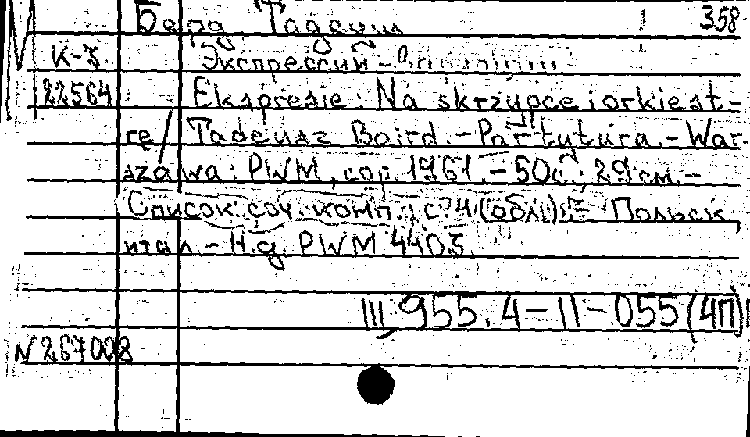 Берд, Тадеуш 358
К-3
22564 Экспрессии
Ekspresje: Na skrzypce i orkiest-
re / Tadeusz Baird. - Partytura. - War-
szawa: PWM, cop. 1961. - 50с.; 29 см. -
Список соч. комп.: с. 4 (обл.). - Польск.,
итал. - Н.д. PWM 4403.
III 955.4-II-055(4П)
N 267008